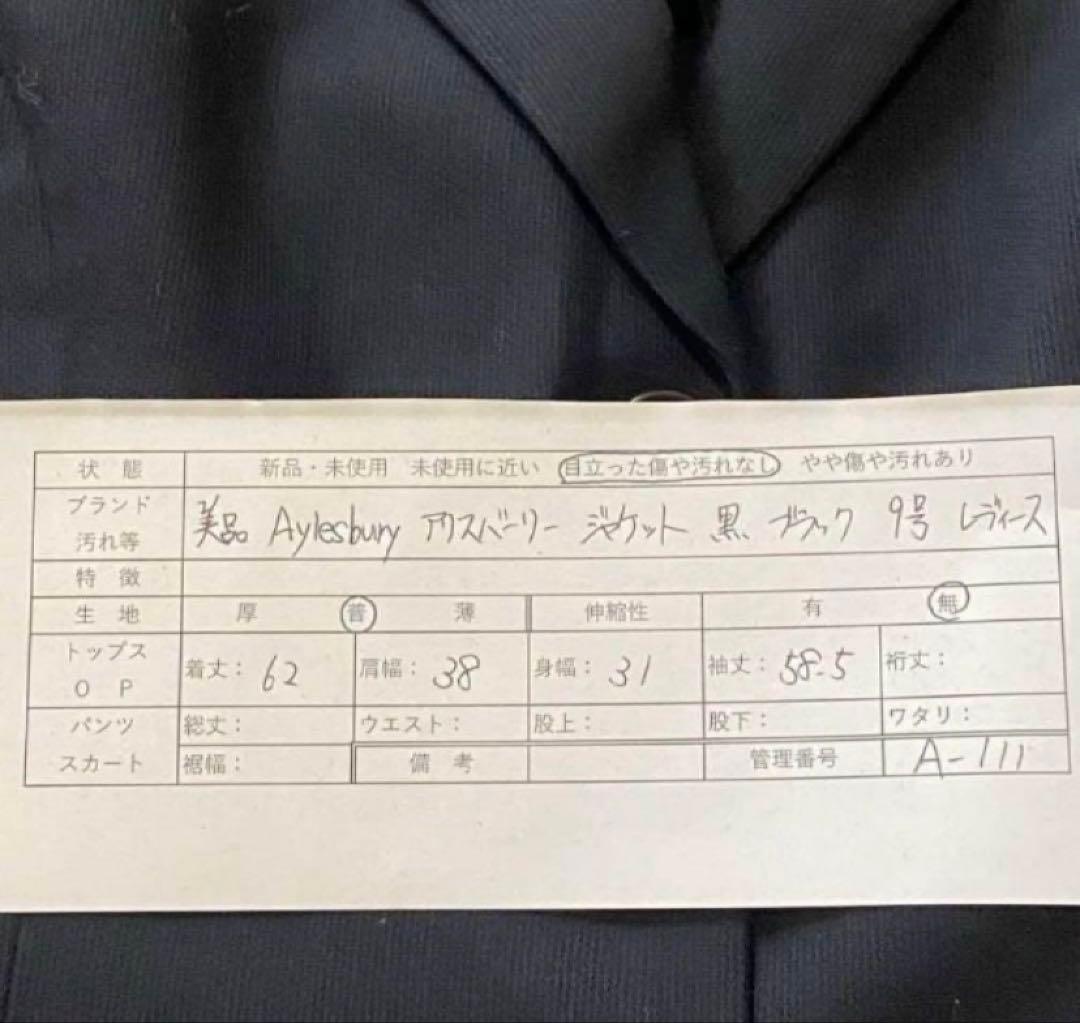 状 態 新品・未使用 未使用に近い 目立った傷や汚れなし やや傷や汚れあり
ブランド
汚れ等 美品 Aylesbury アリスバーリー ジャケット 黒 ブラック 9号 レディース
特 徴
生 地 厚 普 薄 伸縮性 有 無
トップス
O P 着丈: 62 肩幅: 38 身幅: 31 袖丈: 58.5 裄丈:
パンツ 総丈: ウエスト: 股上: 股下: ワタリ:
スカート 裾幅: 備 考 管理番号 A-111